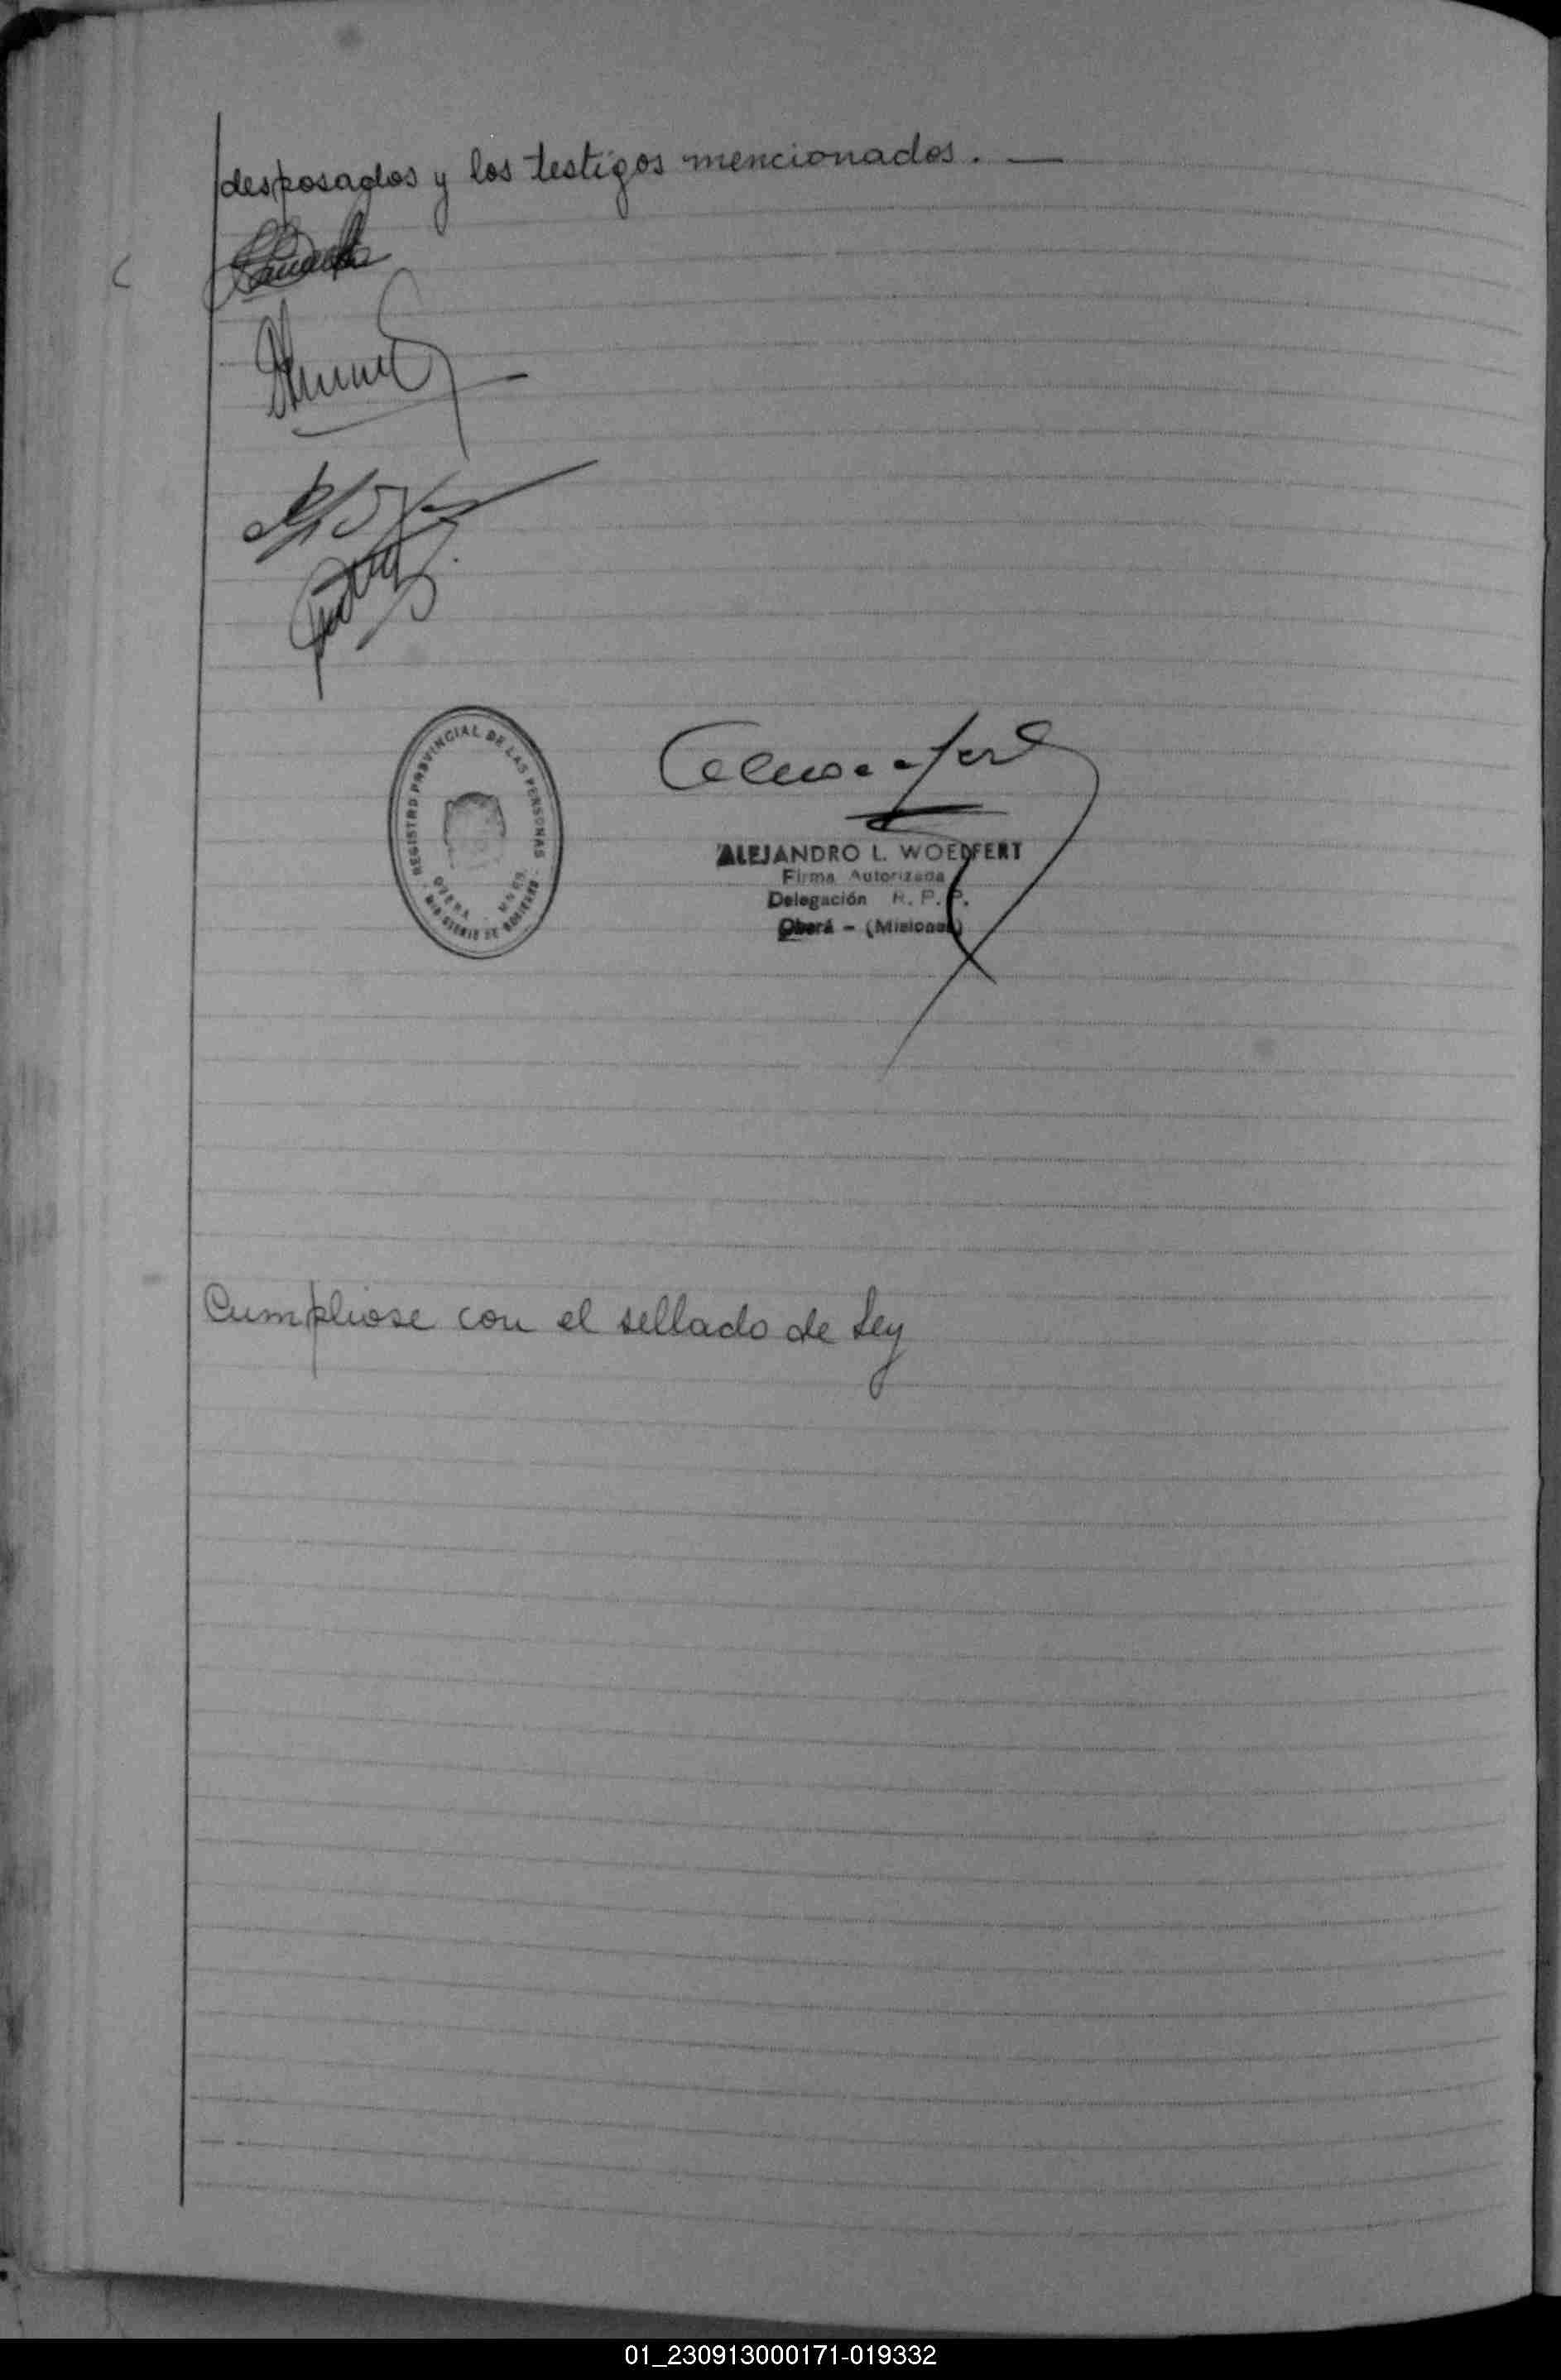 desposados y los testigos mencionados. —
REGISTRO PROVINCIAL DE LAS PERSONAS
OBERA - MNES
MINISTERIO DE GOBIERNO
ALEJANDRO L. WOELFERT
Firma Autorizada
Delegación R. P. P.
Oberá - (Misiones)
Cumpliose con el sellado de Ley
01_230913000171-019332